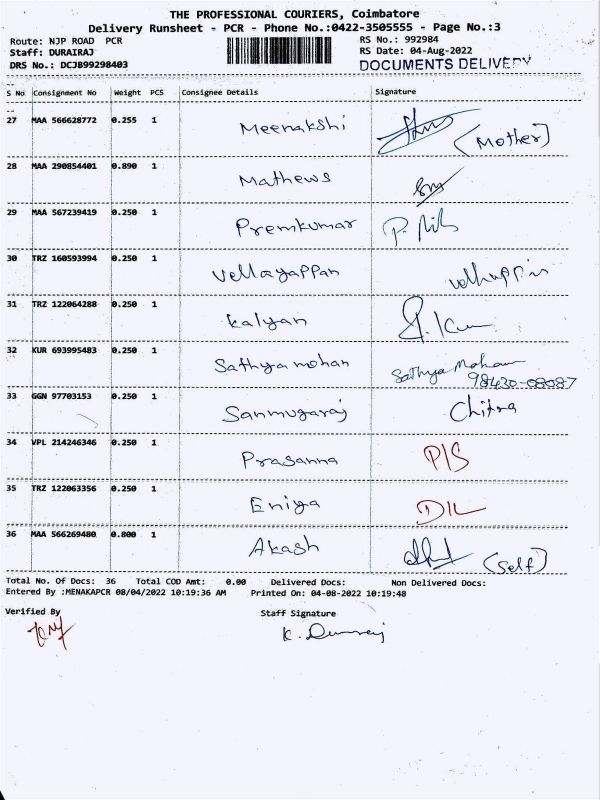 THE PROFESSIONAL COURIERS, Coimbatore
Delivery Runsheet - PCR - Phone No.:0422-3505555 - Page No.:3
Route: NJP ROAD PCR
Staff: DURAIRAJ
DRS No.: DCJB99298403
RS No.: 992984
RS Date: 04-Aug-2022
DOCUMENTS DELIVERY
S No Consignment No Weight PCS Consignee Details Signature
27 MAA 566628772 0.255 1 Meenakshi (Mother)
28 MAA 290854401 0.890 1 Mathews
29 MAA 567239419 0.250 1 Premkumar
30 TRZ 160593994 0.250 1 Vellayappan
31 TRZ 122064288 0.250 1 Kalyan
32 KUR 693995483 0.250 1 Sathya mohan Sathya Mohan
98430-08087
33 GGN 97703153 0.250 1 Sanmugaraj Chitra
34 VPL 214246346 0.250 1 Prasanna P/S
35 TRZ 122063356 0.250 1 Eniya
36 MAA 566269480 0.800 1 Akash (Self)
Total No. Of Docs: 36 Total COD Amt: 0.00 Delivered Docs: Non Delivered Docs:
Entered By :MENAKAPCR 08/04/2022 10:19:36 AM Printed On: 04-08-2022 10:19:48
Verified By Staff Signature
K. Durairaj